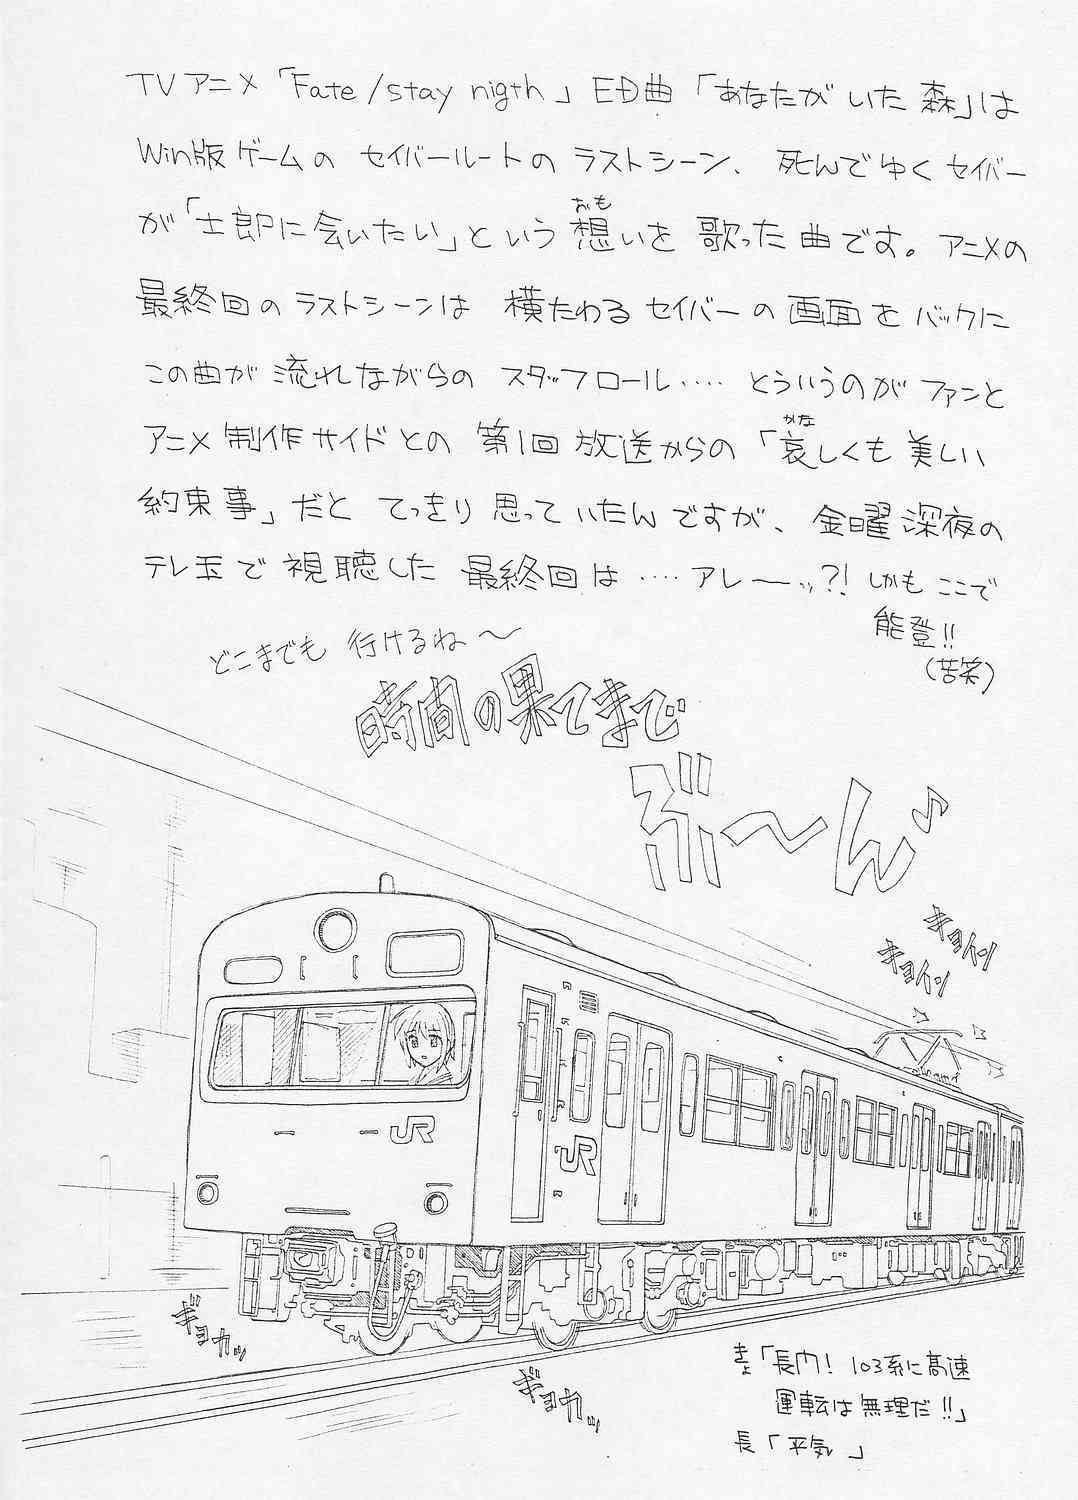 TVアニメ「Fate/stay nigth」ED曲「あなたがいた森」は
Win版ゲームの セイバールートの ラストシーン、死んでゆくセイバー
が「士郎に会いたい」という想いを歌った曲です。アニメの
おも
最終回のラストシーンは 横たわるセイバーの画面をバックに
この曲が流れながらの スタッフロール‥‥とういうのがファンと
アニメ制作サイドとの 第1回放送からの「哀しくも美しい
かな
約束事」だと てっきり思っていたんですが、金曜深夜の
テレ玉で視聴した最終回は‥‥アレーッ?! しかもここで
能登!!
(苦笑)
どこまでも 行けるね〜
時間の果てまで
ぶ〜ん♪
キョイン
キョイン
JR
JR
ギョカッ
ギョカッ
「長門! 103系に高速
運転は無理だ!!」
長「平気」